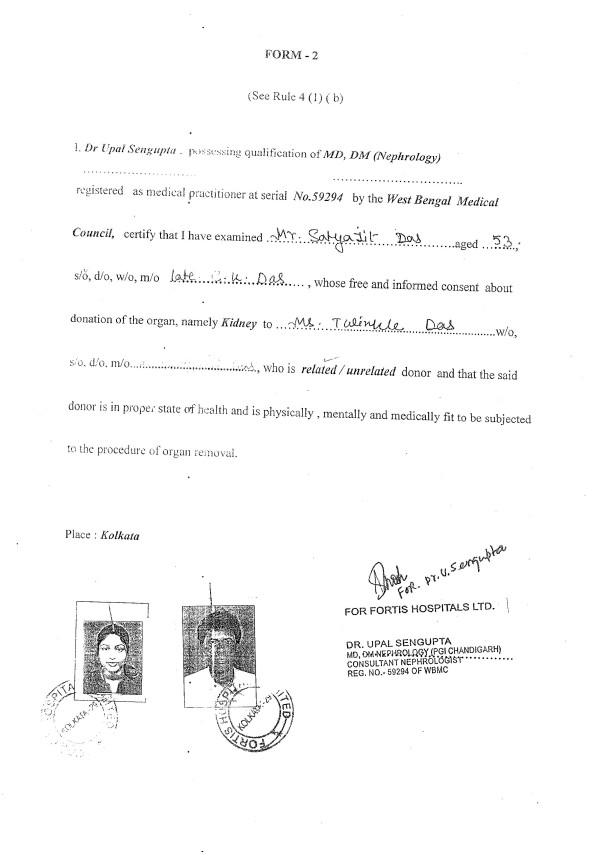 FORM - 2
(See Rule 4 (1) ( b)
I. Dr Upal Sengupta . possessing qualification of MD, DM (Nephrology)
registered as medical practitioner at serial No.59294 by the West Bengal Medical
Council, certify that I have examined Mr. Satyajit Das aged 53,
s/o, d/o, w/o, m/o late Das , whose free and informed consent about
donation of the organ, namely Kidney to Ms. Twinkle Das w/o,
s/o. d/o. m/o , who is related / unrelated donor and that the said
donor is in proper state of health and is physically , mentally and medically fit to be subjected
to the procedure of organ removal.
Place : Kolkata
FOR. Dr. U. Sengupta
FOR FORTIS HOSPITALS LTD.
DR. UPAL SENGUPTA
MD, DM-NEPHROLOGY (PGI CHANDIGARH)
CONSULTANT NEPHROLOGIST
REG. NO.- 59294 OF WBMC
KOLKATA
FORTIS HOSP
KOLKATA